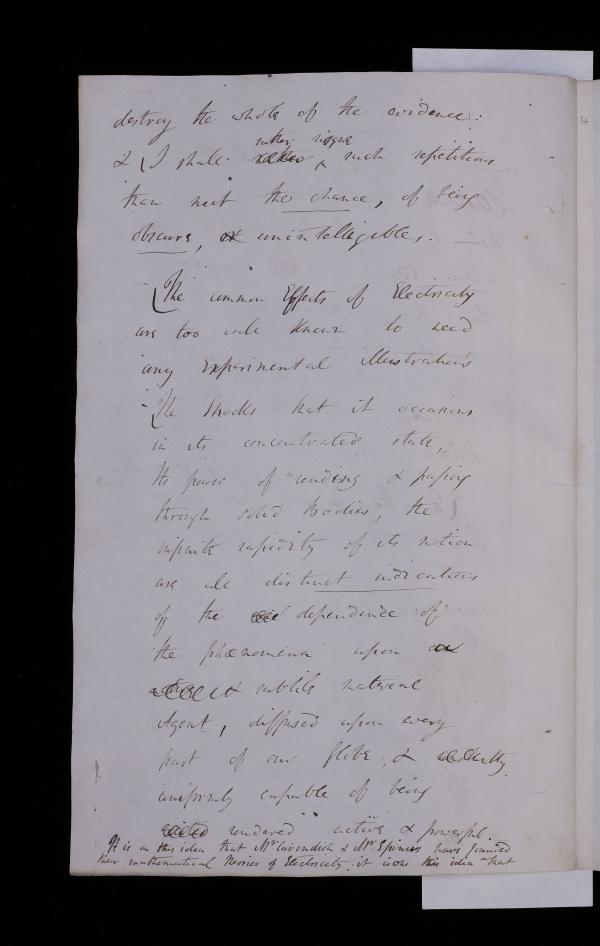 destroy the whole of the evidence:
rather risque
& I shall such repetitions
than not the chance, of being
obscure, or unintelligible.
- The common Effects of Electricity
are too well known to need
any Experimental Illustrations
- The Shocks that it occasions
in its concentrated state,
Its power of rending & passing
through solid bodies, the
infinite rapidity of its motion
are all distinct indications
of the dependence of
the phænomena upon a
subtile material
Agent, diffused upon every
part of our Globe, &
uniformly capable of being
excited rendered active & powerful.
It is on this idea that Mr Cavendish & Mr Epinus have founded
their mathematical theories of Electricity. it is on this idea that